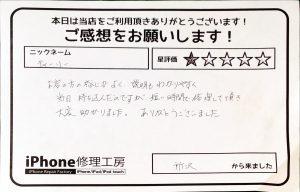 本日は当店をご利用頂きありがとうございます!
ご感想をお願いします!
ニックネーム
星評価 ★☆☆☆☆
お店の方の感じがよく、説明もわかりやすく
当日持ち込んだのですが、短い時間で修理して頂き
大変助かりました。ありがとうございました
iPhone修理工房
iPhone Repair Factory iPhone/iPad/iPod touch
所沢 から来ました